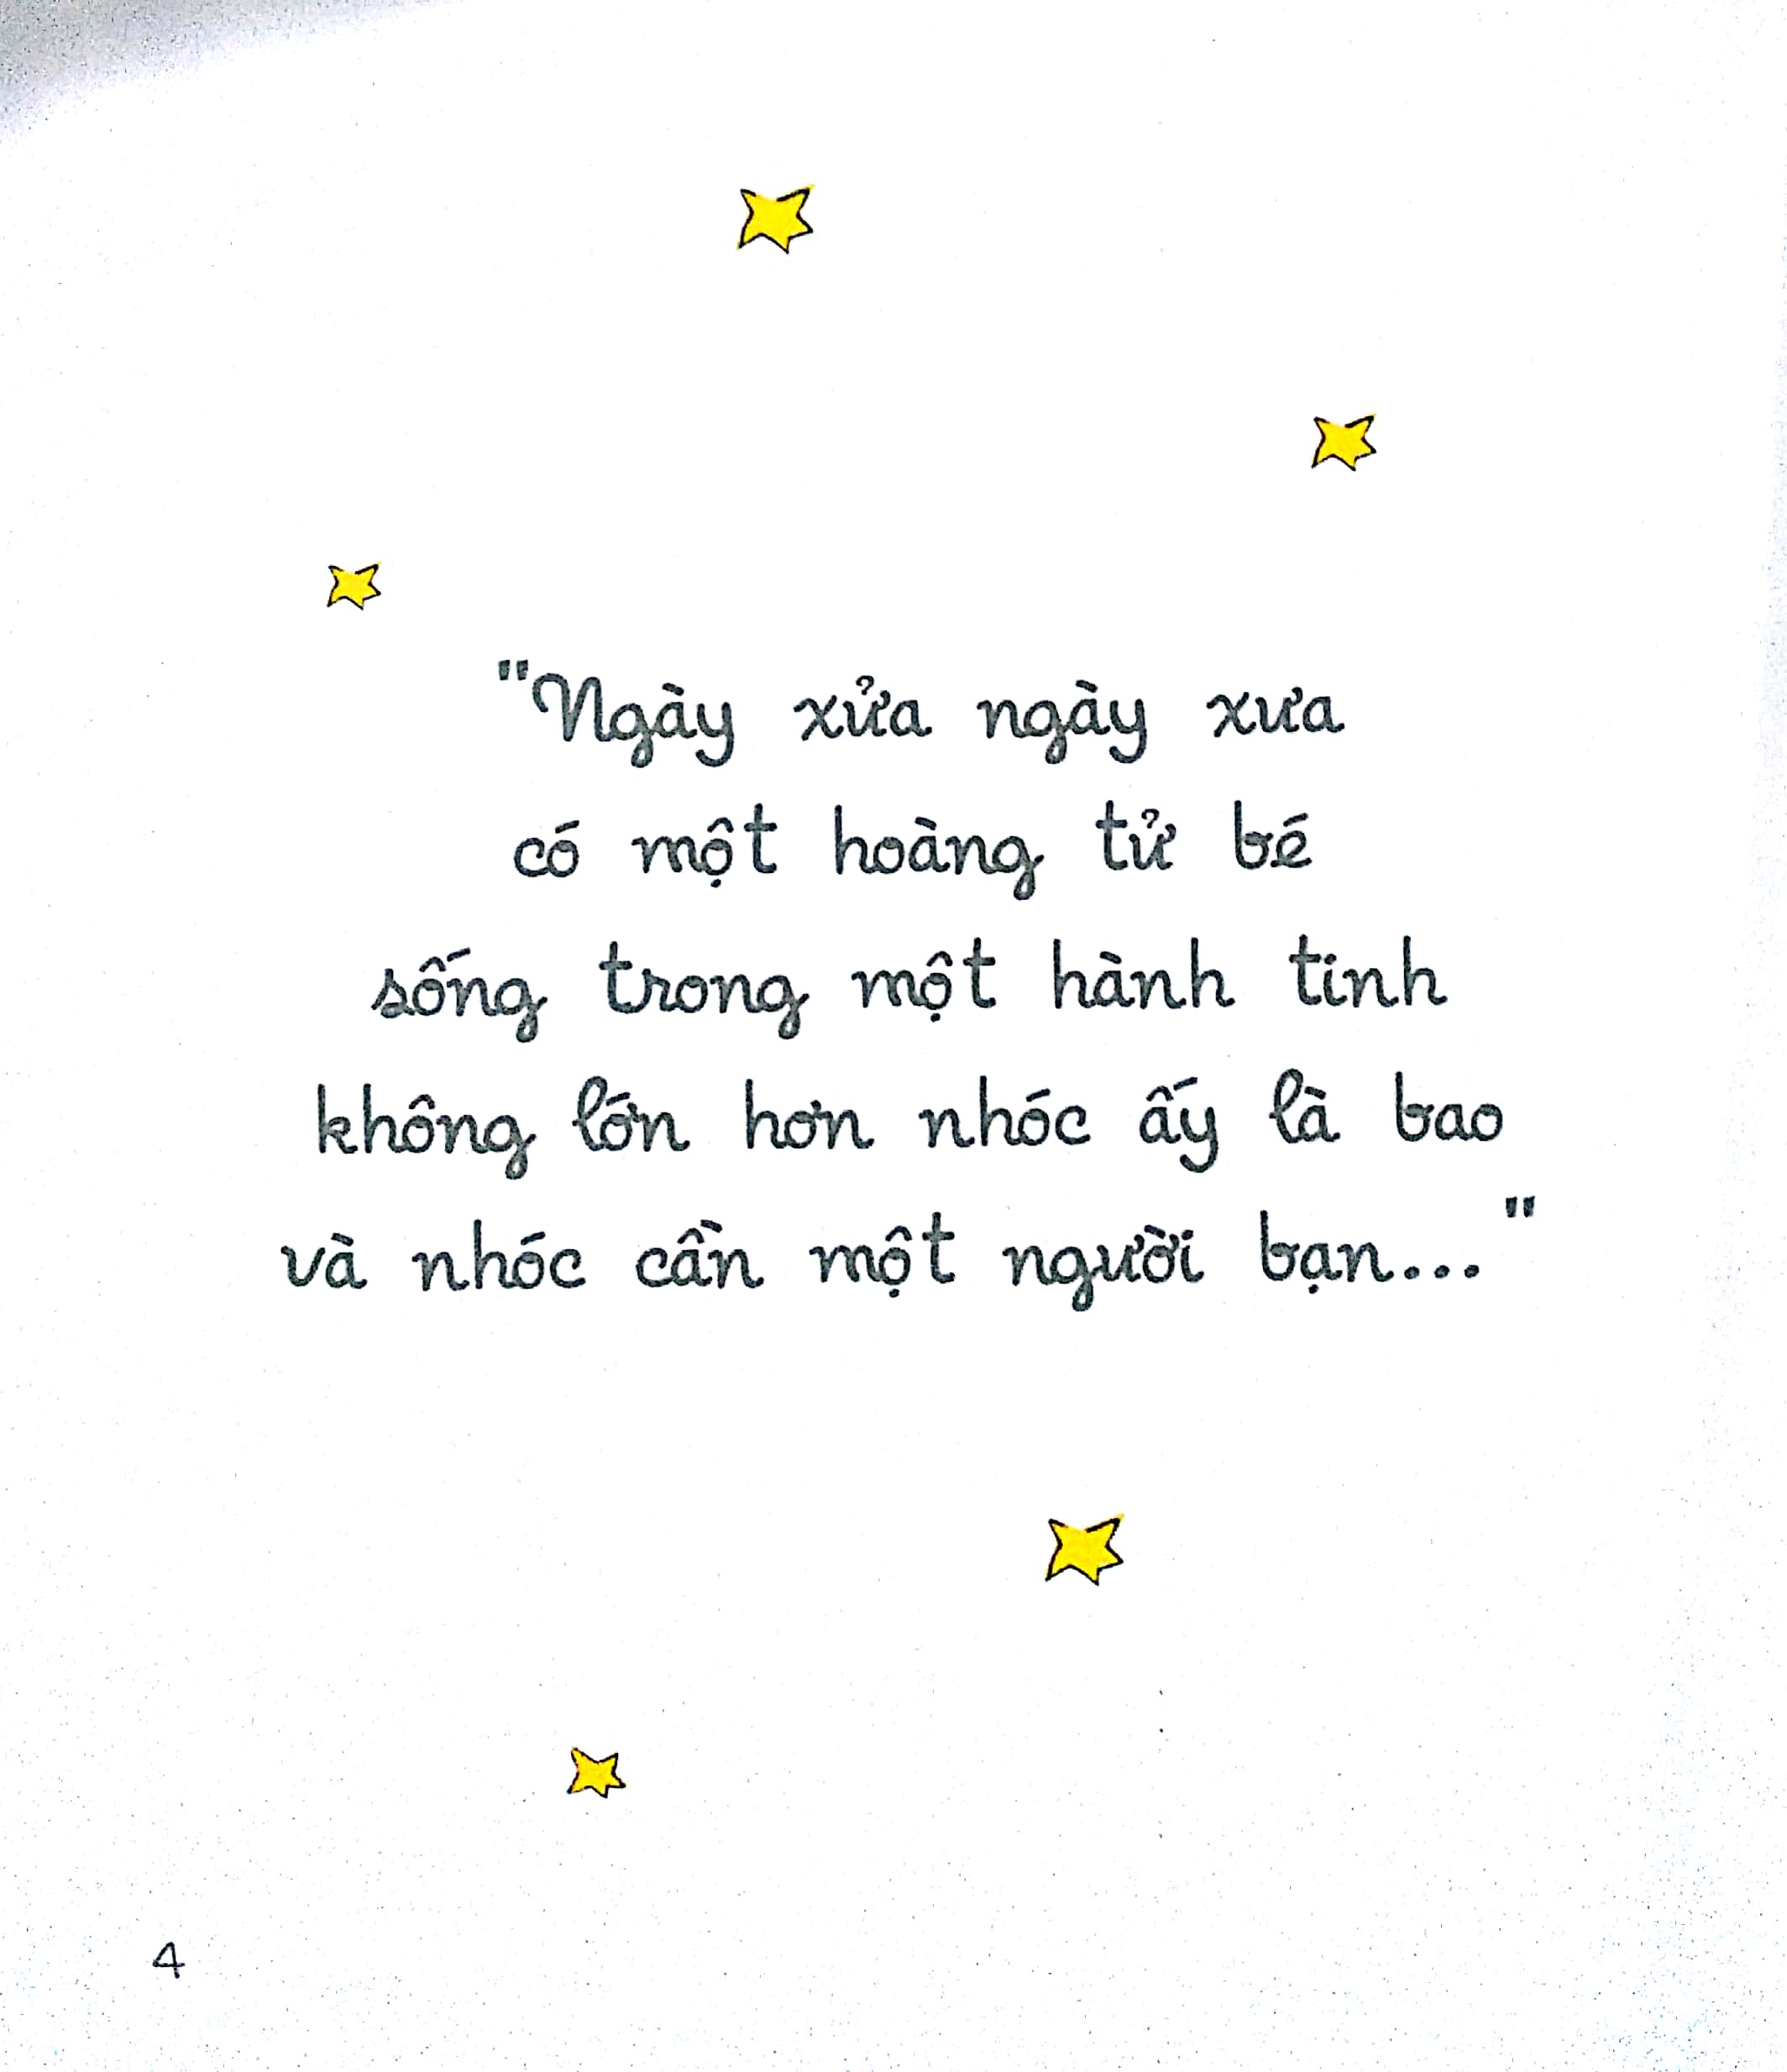 "Ngày xửa ngày xưa
có một hoàng tử bé
sống trong một hành tinh
không lớn hơn nhóc ấy là bao
và nhóc cần một người bạn..."
4